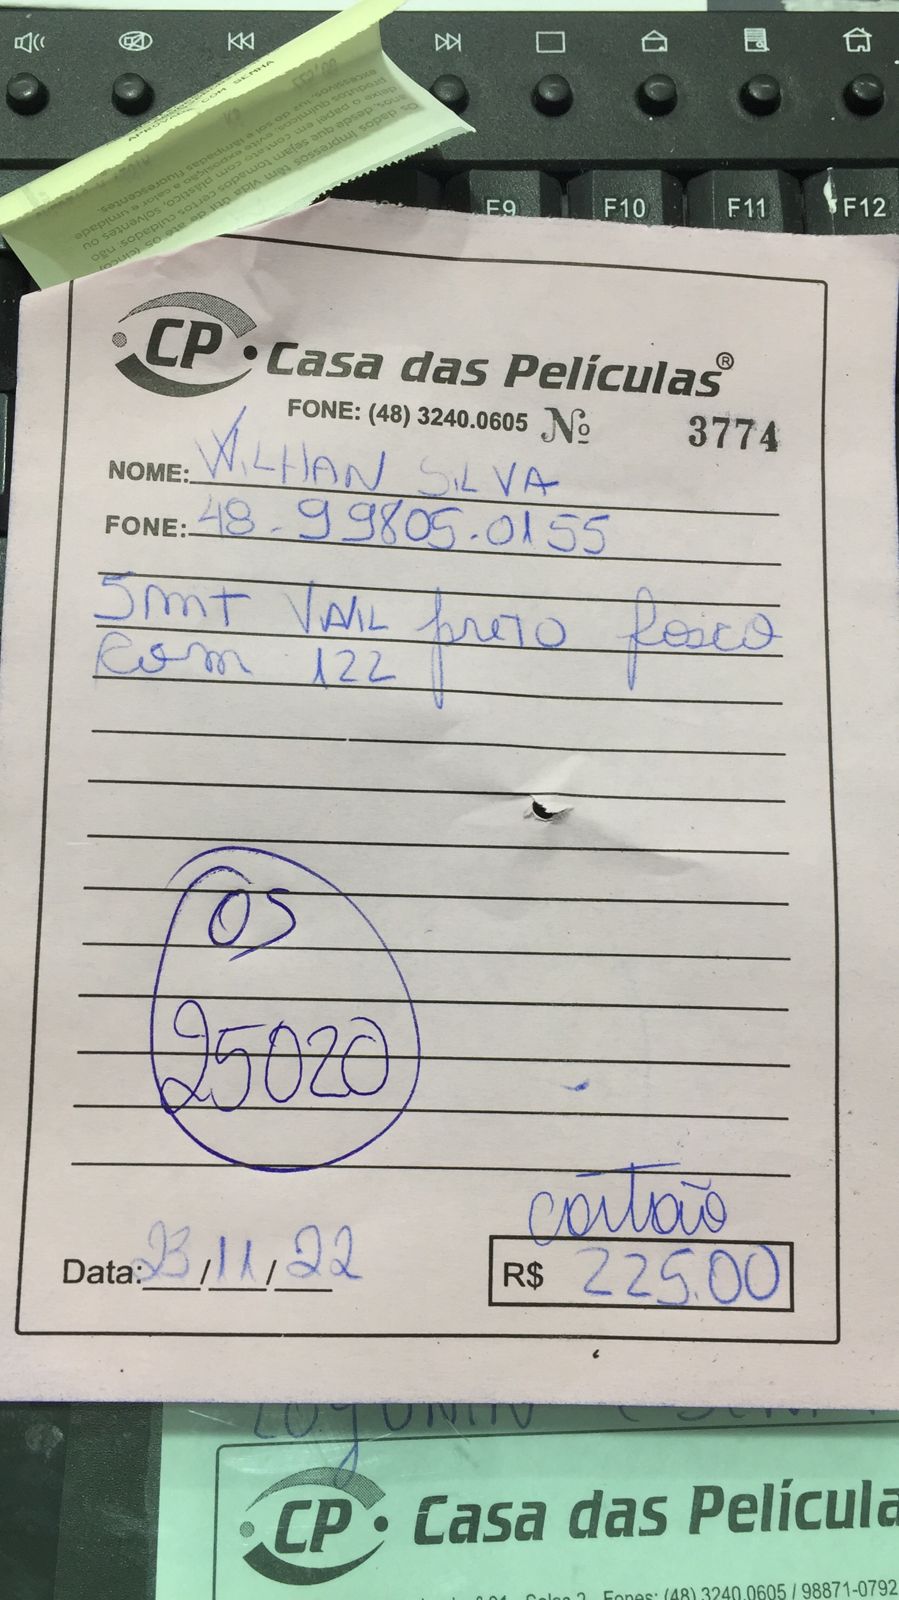 F9 F10 F11 F12
APROVADO COM SENHA
CP Casa das Películas®
FONE: (48) 3240.0605 Nº 3774
NOME: WILHAN SILVA
FONE: 48-99805.0155
5mt VNIL preto fosco
com 122
OS
25020
cartão
Data: 23/11/22 R$ 225.00
CP Casa das Película
Salas 2 - Fones: (48) 3240.0605 / 98871-0792